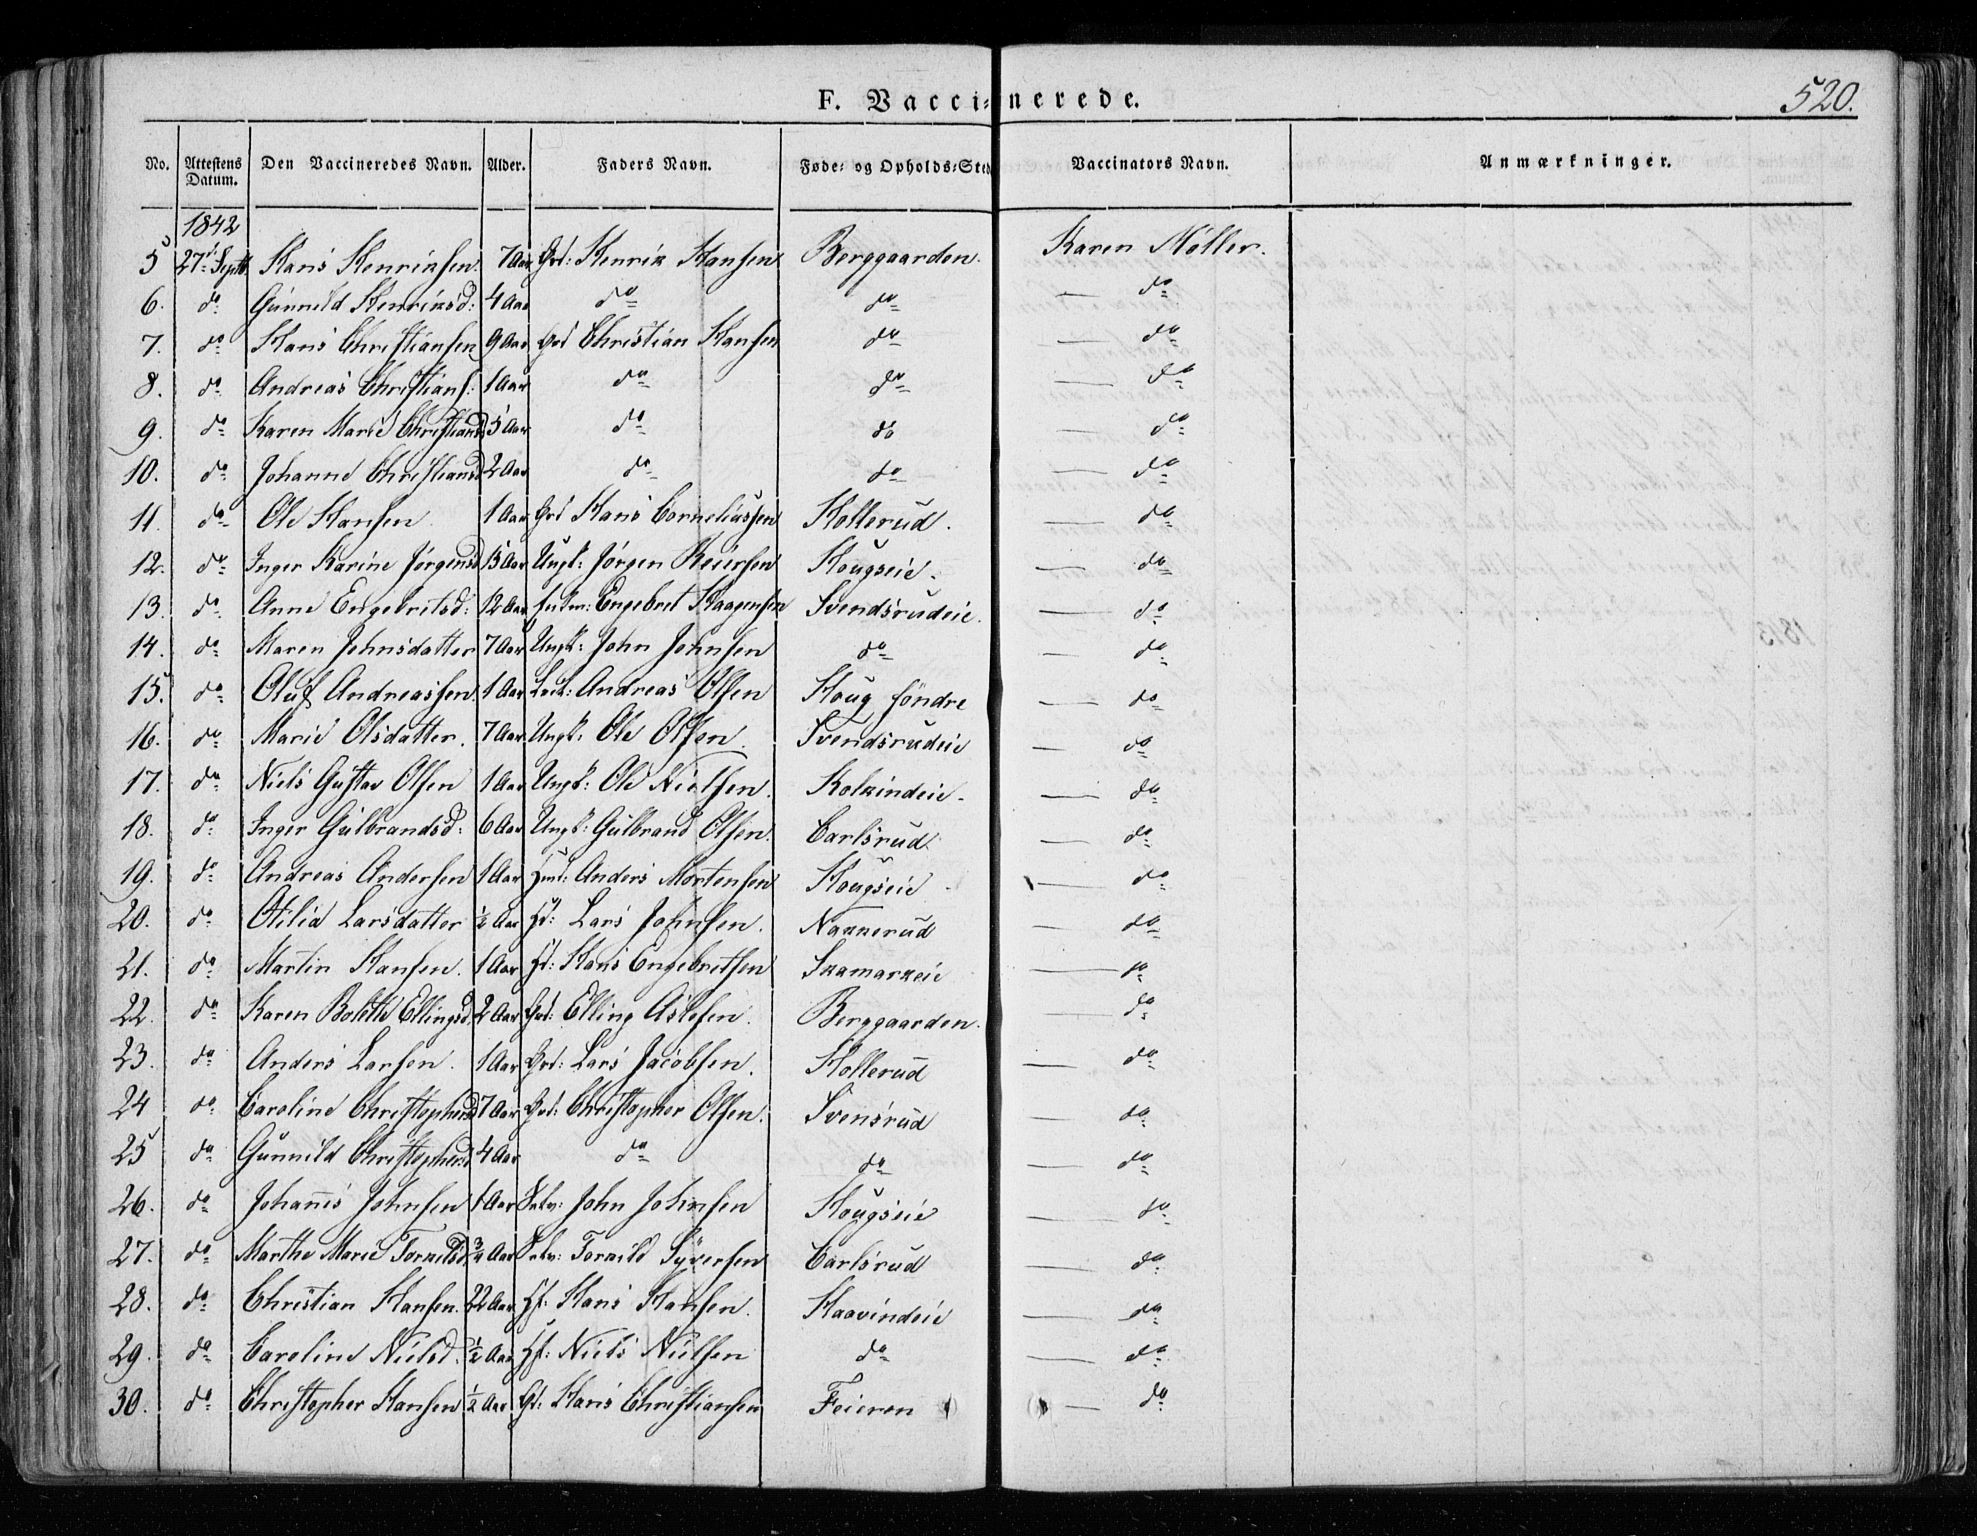 520.
F. Vaccinerede.
No. Attestens Datum. Den Vaccineredes Navn. Alder. Faders Navn. Føde- og Opholds-Sted Vaccinators Navn. Anmærkninger.
1842
5 27de Septb. Hans Henriksen. 7 Aar Grd: Henrik Hansen Berggaarden. Karen Møller.
6. do Gunnild Henriksd: 4 Aar do do — do
7. do Hans Christiansen 9 Aar Grd Christian Hansen do — do
8. do Andreas Christians: 1 Aar do do — do
9. do Karen Marie Christiansd 5 Aar do do — do
10. do Johanne Christiansd 2 Aar do do — do
11. do Ole Hansen 1 Aar Grd Hans Corneliussen Hollerud. — do
12. do Inger Karine Jørgensd 15 Aar Ungk: Jørgen Reiersen Hougseie. — do
13. do Anne Engebretsd: 12 Aar Engebret Haagensen Svendsrudeie. — do
14. do Maren Johnsdatter 7 Aar Ungk: John Johnsen do — do
15. do Oluf Andreassen. 1 Aar Andreas Olsen Houg søndre — do
16. do Marie Olsdatter. 7 Aar Ungk: Ole Olsen. Svendsrudeie — do
17. do Niels Gustav Olsen 1 Aar Ungk: Ole Nielsen. Kolkindeie. — do
18. do Inger Gulbrandsd: 6 Aar Ungk: Gulbrand Olsen. Carlsrud. — do
19. do Andreas Andersen 1 Aar Anders Mortensen Hougseie — do
20. do Otilie Larsdatter ½ Aar Hd: Lars Johnsen. Nakkerud — do
21. do Martin Hansen. 1 Aar Hd: Hans Engebretsen Skamarkeie — do
22. do Karen Bolette Ellingsd. 2 Aar Grd: Elling Aslesen. Berggaarden. — do
23. do Anders Larsen. 1 Aar Grd: Lars Jacobsen. Hollerud — do
24 do Caroline Christophersd 7 Aar Grd: Christopher Olsen. Svensrud — do
25 do Gunnild Christophersd 4 Aar do do — do
26. do Johannes Johnsen 1 Aar John Johnsen Hougseie — do
27. do Marthe Marie Torkildsd. ¾ Aar Torkild Syversen Carlsrud — do
28. do Christian Hansen. 22 Aar Hf: Hans Hansen. Haavindeie — do
29. do Caroline Nielsd. ½ Aar Hf: Niels Nielsen do — do
30. do Christopher Hansen ½ Aar Gd: Hans Christiansen Feieren — do